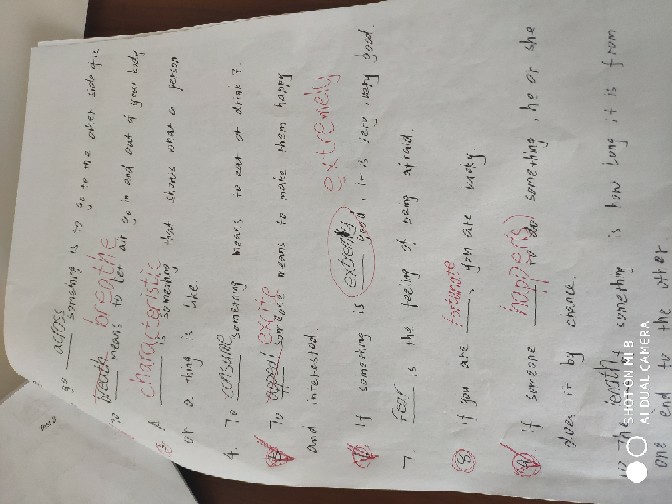 go across something is to go to the other side of it
To breathe means to let air go in and out of your body
A characteristic is something that shows what a person
or a thing is like.
4. To consume something means to eat or drink it.
To appeal excite someone means to make them happy
and interested.
If something is extremely good, it is very very good.
extremely
7. Fear is the feeling of being afraid.
8 If you are fortunate, you are lucky
9 If someone happens to do something, he or she
does it by chance.
10 The length something is how long it is from
one end to the other
SHOT ON MI 8
AI DUAL CAMERA